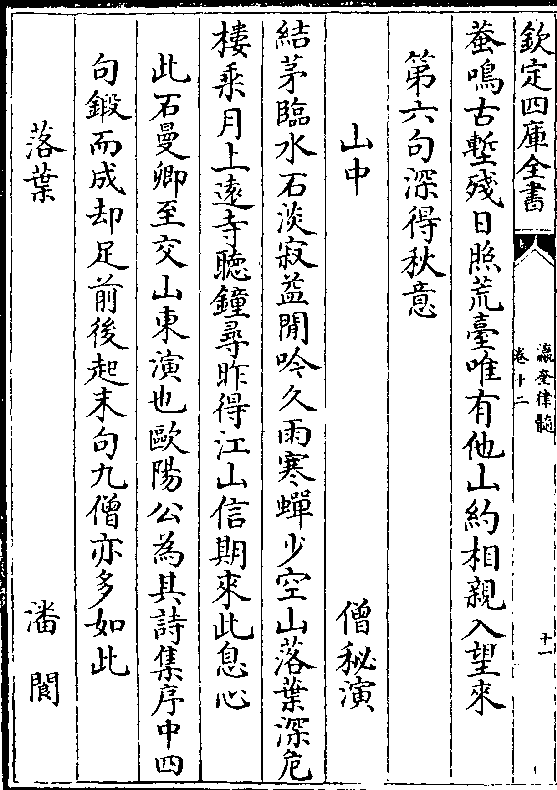 欽定四庫全書
瀛奎律髓
卷十二
十一
蛬鳴古塹殘日照荒臺唯有他山約相親入望來
第六句深得秋意
山中 僧秘演
結茅臨水石淡寂益閒吟久雨寒蟬少空山落葉深危
樓乘月上遠寺聽鐘尋昨得江山信期來此息心
此石曼卿至交山東演也歐陽公為其詩集序中四
句鍛而成却足前後起末句九僧亦多如此
落葉 潘閬